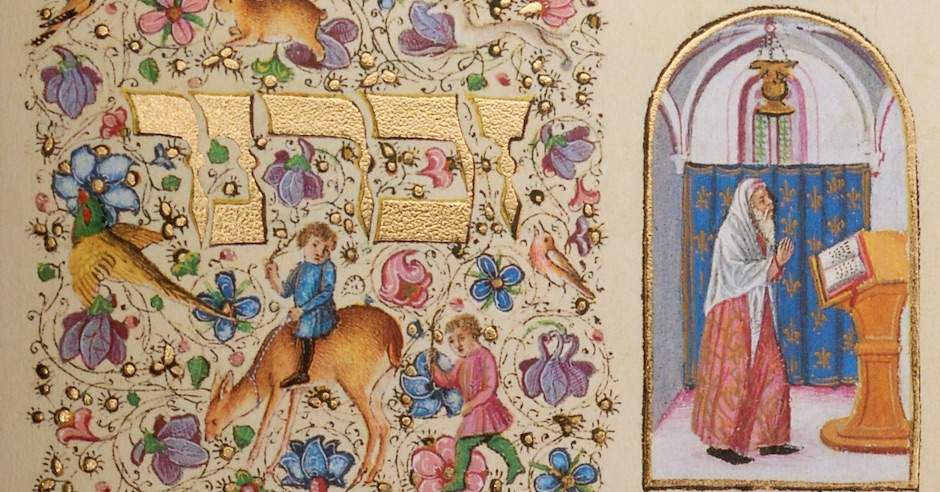 זכרנו